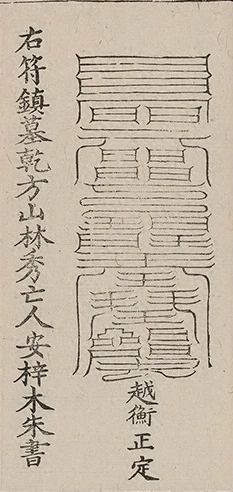 右符鎮墓乾方山林秀亡人安梓木朱書
越衡正定